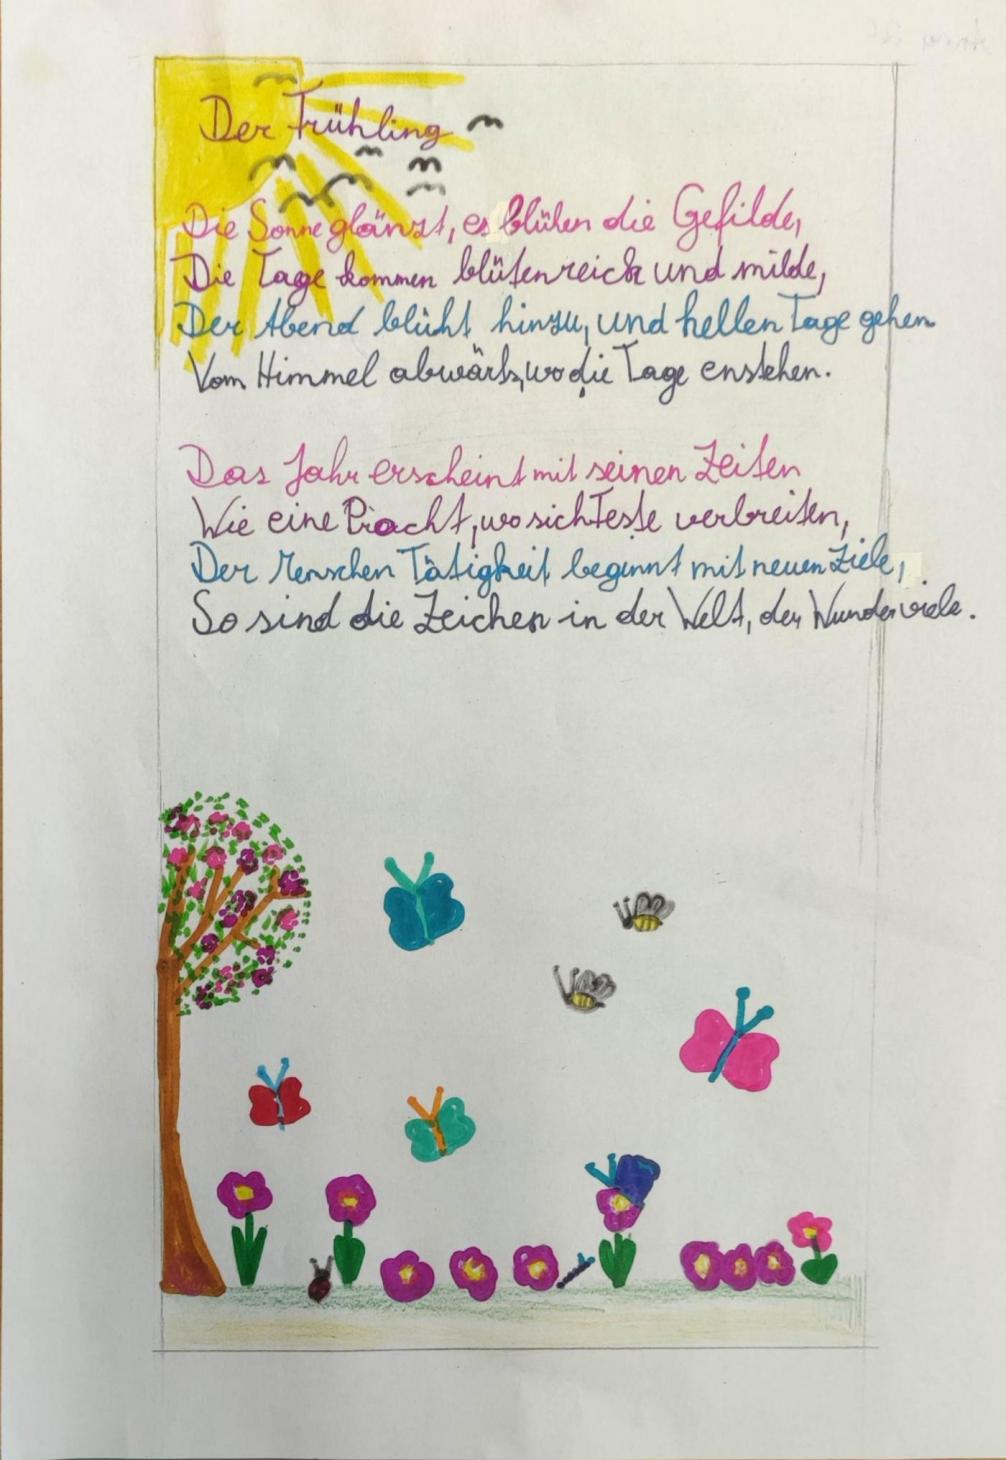 Der Frühling
Die Sonne glänzt, es blühen die Gefilde,
Die Tage kommen blütenreich und milde,
Der Abend blüht hinzu, und hellen Tage gehen
Vom Himmel abwärts, wo die Tage enstehen.
Das Jahr erscheint mit seinen Zeiten
Wie eine Pracht, wo sich Feste verbreiten,
Der Menschen Tätigkeit beginnt mit neuen Ziele,
So sind die Zeichen in der Welt, der Wunder viele.